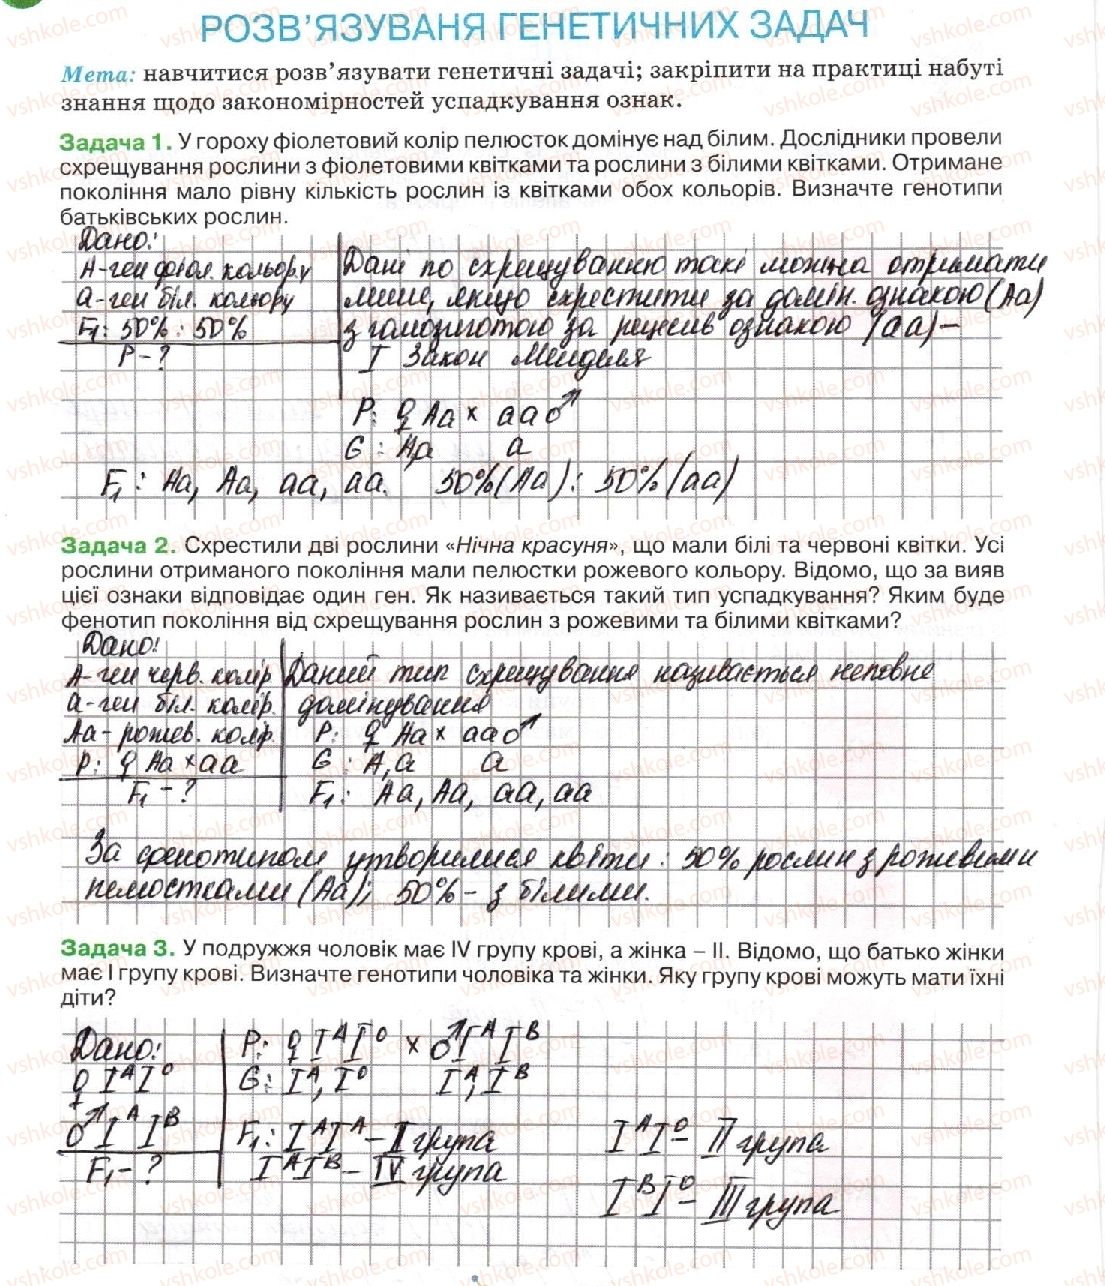 РОЗВ’ЯЗУВАНЯ ГЕНЕТИЧНИХ ЗАДАЧ
Мета: навчитися розв’язувати генетичні задачі; закріпити на практиці набуті
знання щодо закономірностей успадкування ознак.
Задача 1. У гороху фіолетовий колір пелюсток домінує над білим. Дослідники провели
схрещування рослини з фіолетовими квітками та рослини з білими квітками. Отримане
покоління мало рівну кількість рослин із квітками обох кольорів. Визначте генотипи
батьківських рослин.
Дано:
А-ген фіол. кольору
а-ген біл. кольору
F₁: 50% : 50%
Р-?
Дані по схрещуванню такі можна отримати
лише, якщо схрестити за домін. ознакою (Аа)
з гомозиготою за рецесив ознакою (аа) –
І Закон Менделя
Р: ♀ Аа × аа ♂
G: А, а а
F₁: Аа, Аа, аа, аа. 50% (Аа) : 50% (аа)
Задача 2. Схрестили дві рослини «Нічна красуня», що мали білі та червоні квітки. Усі
рослини отриманого покоління мали пелюстки рожевого кольору. Відомо, що за вияв
цієї ознаки відповідає один ген. Як називається такий тип успадкування? Яким буде
фенотип покоління від схрещування рослин з рожевими та білими квітками?
Дано:
А-ген черв. колір
а-ген біл. колір.
Аа-рожев. колір.
Р: ♀ Аа × аа
F₁ - ?
Даний тип схрещування називається неповне
домінування
Р: ♀ Аа × аа ♂
G: А, а а
F₁: Аа, Аа, аа, аа
За фенотипом утворилися квіти: 50% рослин з рожевими
пелюстками (Аа); 50% – з білими.
Задача 3. У подружжя чоловік має IV групу крові, а жінка – II. Відомо, що батько жінки
має I групу крові. Визначте генотипи чоловіка та жінки. Яку групу крові можуть мати їхні
діти?
Дано:
♀ IᴬI⁰
♂ IᴬIᴮ
F₁ - ?
Р: ♀ IᴬI⁰ × ♂ IᴬIᴮ
G: Iᴬ, I⁰ Iᴬ, Iᴮ
F₁: IᴬIᴬ – II група IᴬI⁰ – II група
IᴬIᴮ – IV група
IᴮI⁰ – III група
vshkole.com